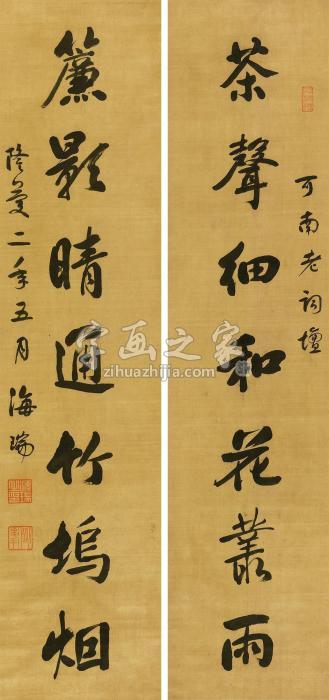 可南老詞壇
茶聲細和花叢雨
簾影晴通竹塢烟
隆慶二年五月海瑞
字画之家
zihuazhijia.com